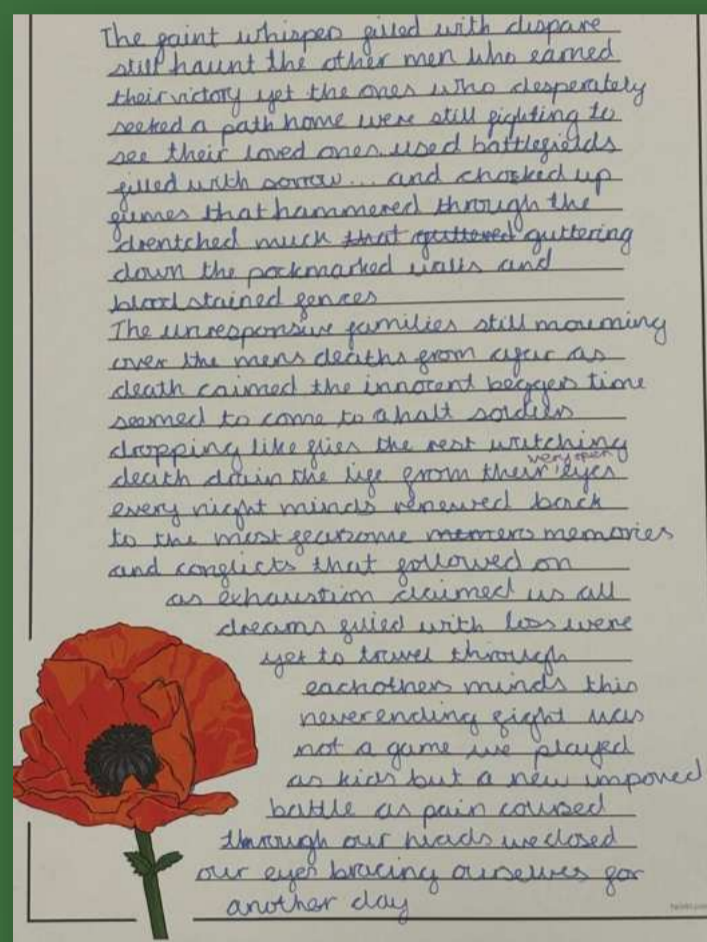 The faint whispers filled with dispare
still haunt the other men who earned
their victory yet the ones who desperately
seeked a path home were still fighting to
see their loved ones. used battlefields
filled with sorrow... and choked up
fumes that hammered through the
drentched muck that guttered guttering
down the pockmarked walls and
bloodstained fences
The unresponsive families still mourning
over the mens deaths from afar as
death caimed the innocent beggers time
seemed to come to a halt soldiers
dropping like flies the rest wutching
death drain the life from their very open eyes
every night minds renewed back
to the most fearsome memories
and conflicts that followed on
as exhaustion claimed us all
dreams filled with loss were
yet to travel through
eachothers minds this
neverending fight was
not a game we played
as kids but a new imponed
battle as pain coursed
through our heads we closed
our eyes bracing ourselves for
another day